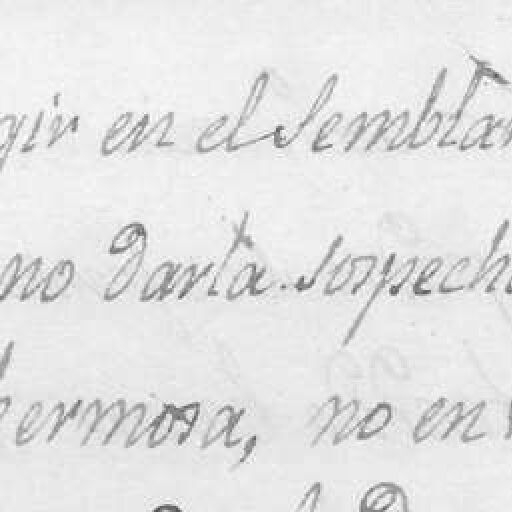 gir en el semblan
no darla sospech
hermosa, no en